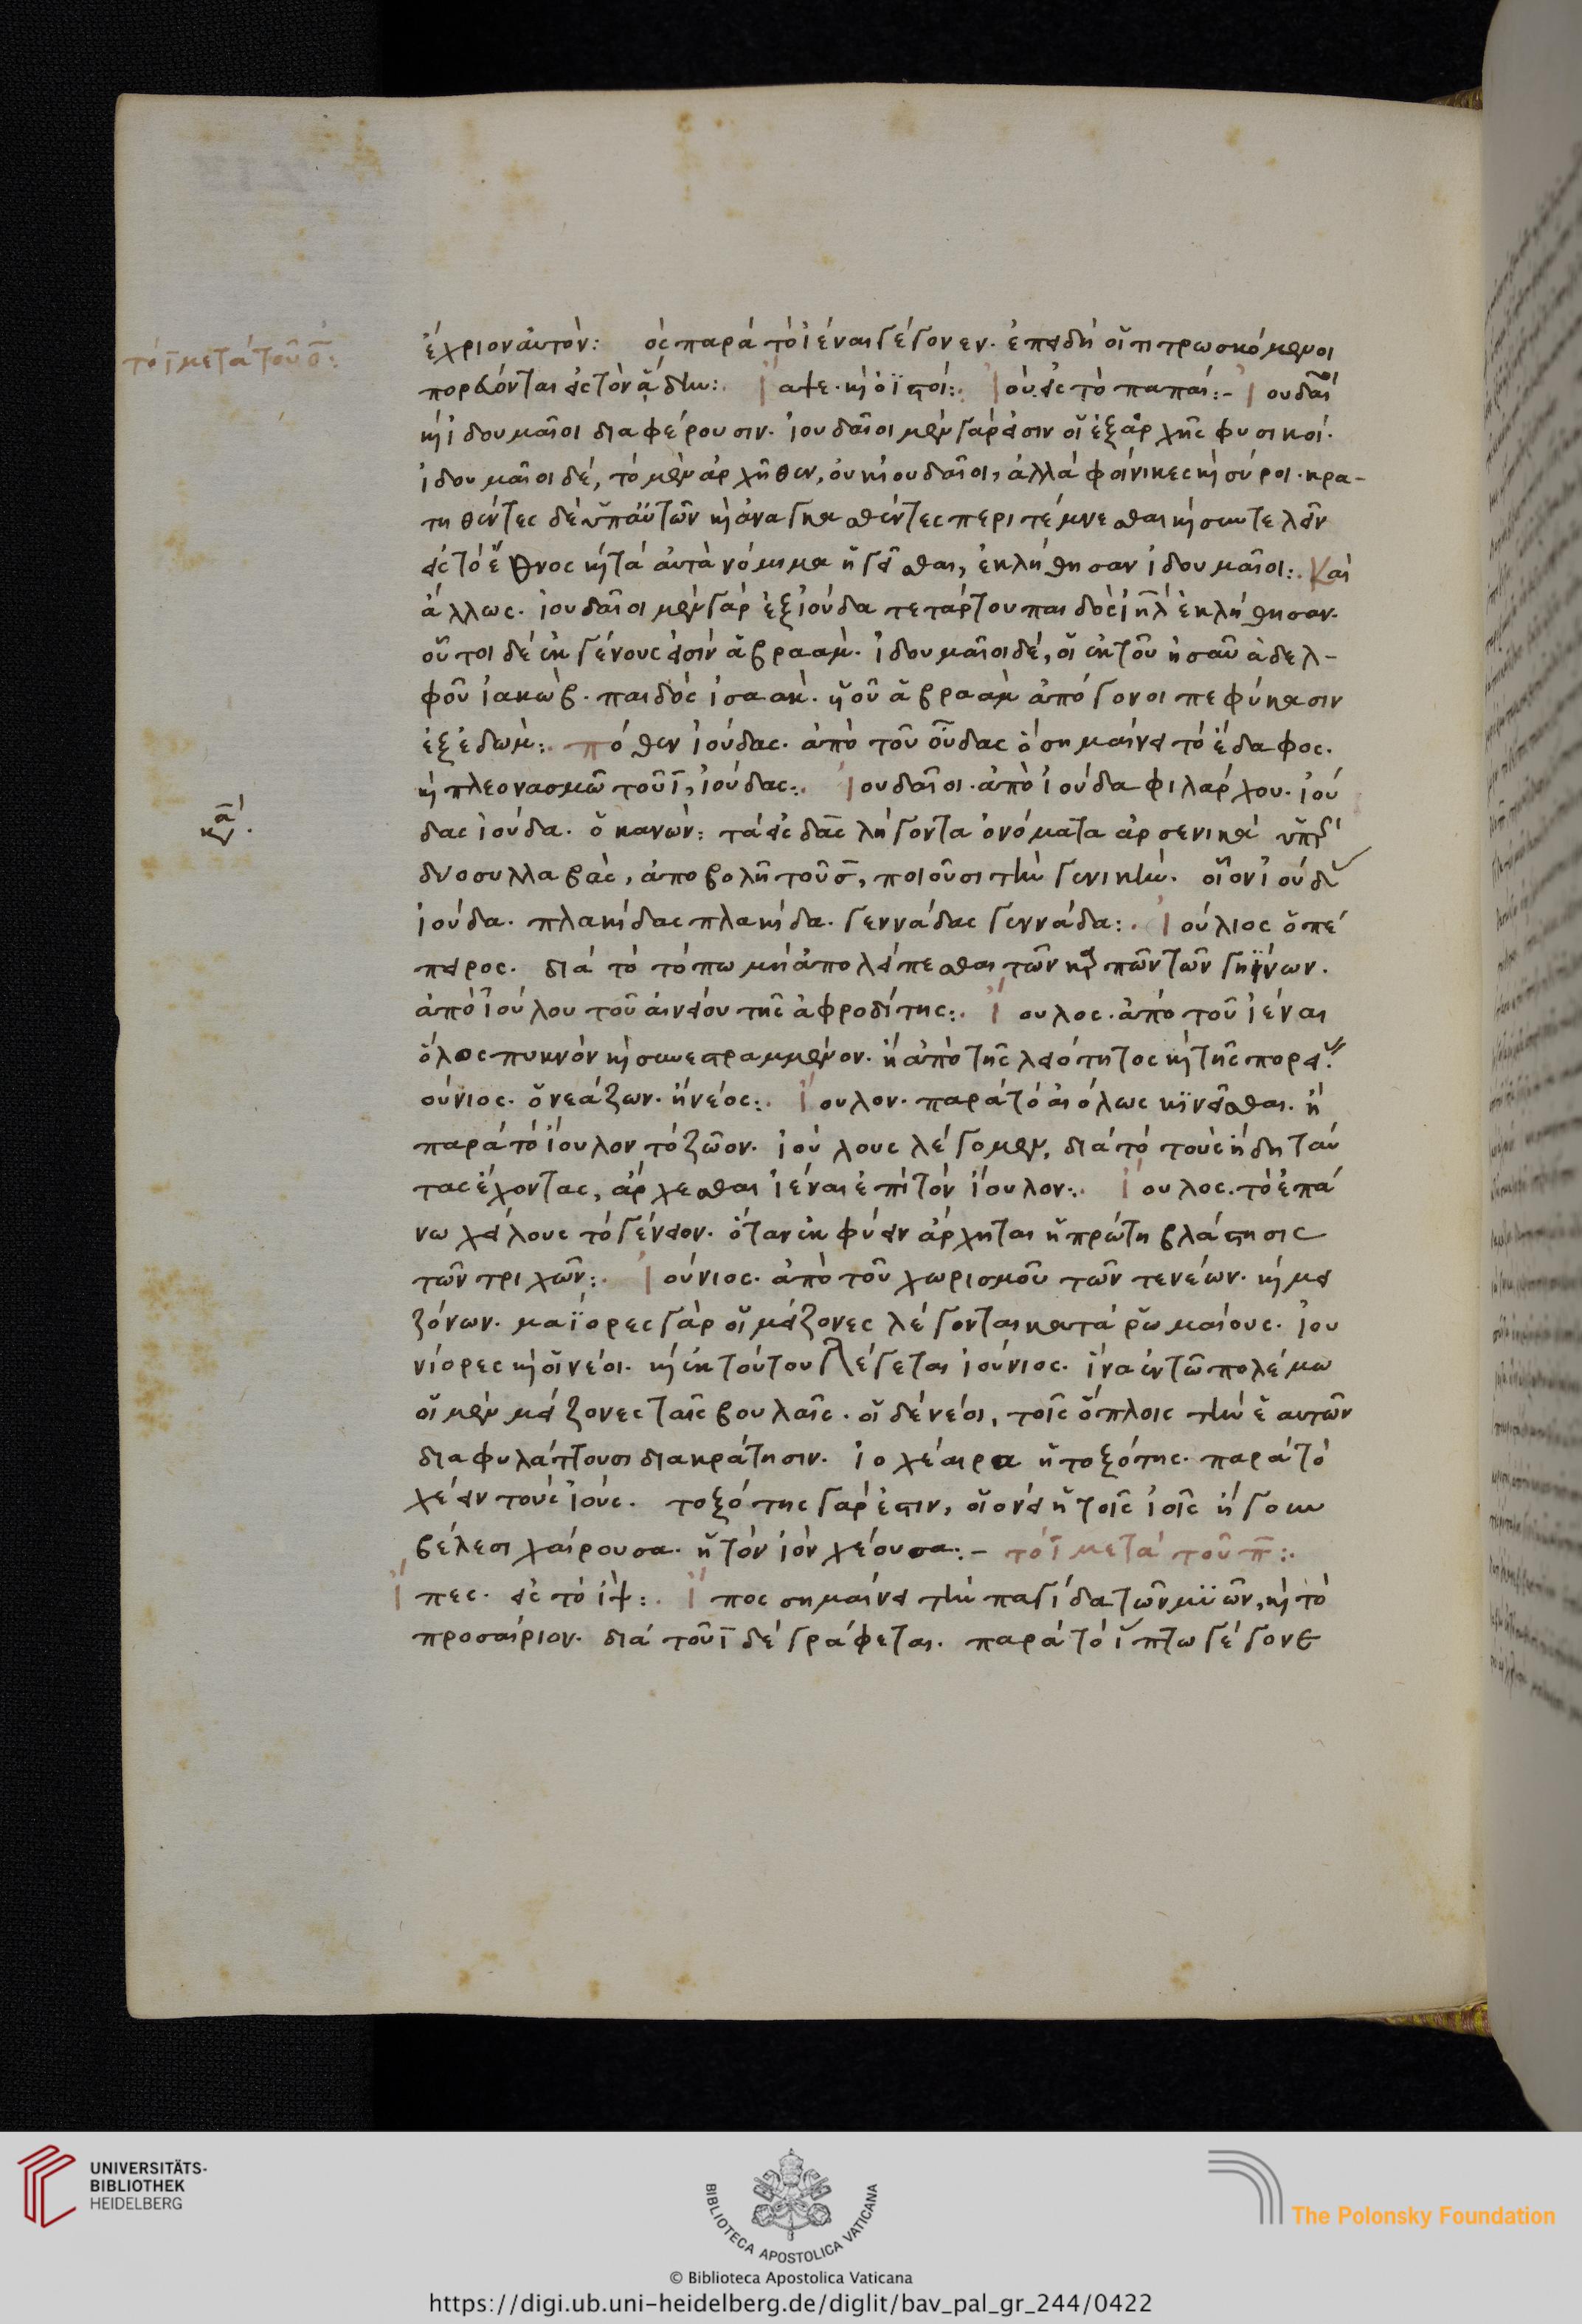 τό ῑ μετὰ τοῦ σ̄:
ἔχριον αὐτόν: ὁς παρὰ τὸ ἰέναι γέγονεν. ἐπειδὴ οἱ τιτρωσκόμενοι
πορεύονται εἰς τὸν ἅδην:. ἰατε. κὶ ὀϊστοί:. ἰού. εἰς τὸ παπαί:- ἰουδαῖοι
κὶ ἰδουμαῖοι διαφέρουσιν. ἰουδαῖοι μὲν γάρ εἰσιν οἱ ἐξαρχῆς φυσικοί.
ἰδουμαῖοι δέ, τὸ μὲν ἀρχῆθεν, οὐκ ἰουδαῖοι, ἀλλὰ φοίνικες κὶ σύροι. κρα-
τηθέντες δὲ ὑπ' αὐτῶν κὶ ἀναγκασθέντες περιτέμνεσθαι κὶ συντελεῖν
εἰς τὸ ἔθνος κὶ τὰ αὐτὰ νόμιμα ἡγεῖσθαι, ἐκλήθησαν ἰδουμαῖοι:. Καὶ
ἄλλως. ἰουδαῖοι μὲν γὰρ ἐξ ἰούδα τετάρτου παιδὸς ἰηλ ἐκλήθησαν.
οὗτοι δὲ ἐκ γένους εἰσὶν ἁβραάμ. ἰδουμαῖοι δέ, οἱ ἐκ τοῦ ἠσαῦ ἀδελ-
φοῦ ἰακώβ. παιδὸς ἰσαάκ. ἢ οὖν ἁβραὰμ ἀπόγονοι πεφύκασιν
ἐξ ἐδώμ:. πόθεν ἰούδας. ἀπὸ τοῦ οὖδας ὃ σημαίνει τὸ ἔδαφος.
κὶ πλεονασμῶ τοῦ ῑ, ἰούδας:. ἰουδαῖοι. ἀπὸ ἰούδα φιλάρχου. ἰού
δας ἰούδα. ὁ κανών: τὰ εἰς δας λήγοντα ὀνόματα ἀρσενικὰ ὑπὲρ
δυοσυλλαβὰς, ἀποβολῆ τοῦ σ̄, ποιοῦσι τὴν γενικήν. οἷον ἰούδας
ἰούδα. πλακίδας πλακίδα. γεννάδας γεννάδα:. ἰούλιος ὁ πέ
πειρος. διὰ τὸ τόπω μὴ ἀπολείπεσθαι τῶν κτ πάντων γηίνων.
ἀπὸ ἰούλου τοῦ αἰνείου τῆς ἀφροδίτης:. ἴουλος. ἀπὸ τοῦ ἰέναι
ὅλος πυκνὸν κὶ συνεστραμμένον. ἢ ἀπὸ τῆς λειότητος κὶ τῆς πορείας.
ούνιος. ὁ νεάζων. ἢ νέος:. ἴουλον. παρὰ τὸ αἰόλως κινεῖσθαι. ἢ
παρὰ τὸ ἴουλον τὸ ζῶον. ἰούλους λέγομεν, διὰ τὸ τοὺς ἤδη ταύ
τας ἔχοντας, ἄρχεσθαι ἰέναι ἐπὶ τὸν ἴουλον:. ἴουλος. τὸ ἐπά
νω χείλους τὸ γένειον. ὅταν ἐκφύειν ἄρχηται ἡ πρώτη βλάστησις
τῶν τριχῶν:. ἰούνιος. ἀπὸ τοῦ χωρισμοῦ τῶν τε νέων. κὶ μει
ζόνων. μαϊόρες γὰρ οἱ μείζονες λέγονται κατὰ ῥωμαίους. ἰου
νίορες κὶ οἱ νέοι. κὶ ἐκ τούτου λέγεται ἰούνιος. ἵνα ἐν τῶ πολέμω
οἱ μὲν μείζονες ταῖς βουλαῖς. οἱ δὲ νέοι, τοῖς ὅπλοις τὴν ἑαυτῶν
διαφυλάττουσι διακράτησιν. ἰοχέαιρα ἡ τοξότης. παρὰ τὸ
χέειν τοὺς ἰούς. τοξότης γάρ ἐστιν, οἱονεὶ ἡ τοῖς ἰοῖς ἤγουν
βέλεσι χαίρουσα. ἢ τὸν ἰὸν χέουσα:- τὸ ῑ μετὰ τοῦ π̄:.
ἶπες. εἰς τὸ ἴψ:. ἶπος σημαίνει τὴν παγίδα τῶν μυῶν, κὶ τὸ
προσαίριον. διὰ τοῦ ῑ δὲ γράφεται. παρὰ τὸ ἵπτω γέγονε
UNIVERSITÄTS-
BIBLIOTHEK
HEIDELBERG
BIBLIOTECA APOSTOLICA VATICANA
The Polonsky Foundation
© Biblioteca Apostolica Vaticana
https://digi.ub.uni-heidelberg.de/diglit/bav_pal_gr_244/0422